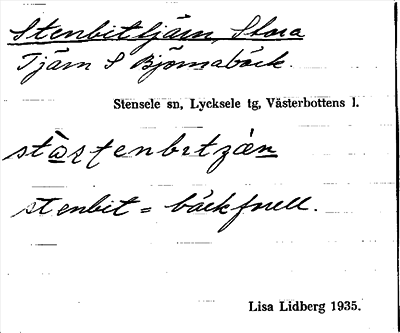 Stenbittjärn, Stora
Tjärn S Björnabäck.
Stensele sn, Lycksele tg, Västerbottens l.
stenbit = bäckfnell.
Lisa Lidberg 1935.